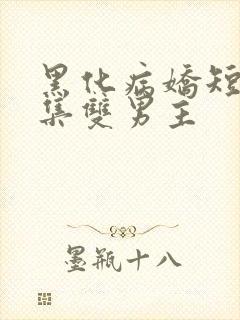 黑化病嬌短
集雙男主
墨瓶十八